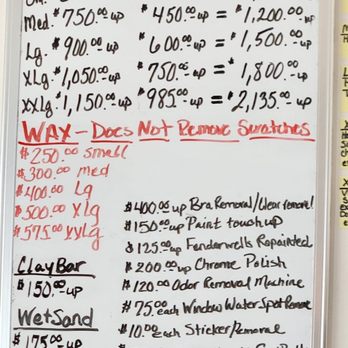 Med. $750.00 up $450.00-up = $1,200.00-up
Lg. $900.00 up $600.00-up = $1,500.00-up
XLg. $1,050.00-up $750.00-up = $1,800.00-up
XXLg. $1,150.00-up $985.00-up = $2,135.00-up
WAX - Does Not Remove Scratches
$250.00 small
$300.00 med
$400.00 Lg
$500.00 XLg
$575.00 XXLg
$400.00 up Bra Removal/Clear removal
$150.00 up Paint touch up
$125.00 up Fenderwells Repainted
$200.00 up Chrome Polish
$120.00 Odor Removal Machine
$75.00 each Window Water Spot Remove
$10.00 each Sticker/Removal
Clay Bar
$150.00-up
Wet Sand
$175.00-up